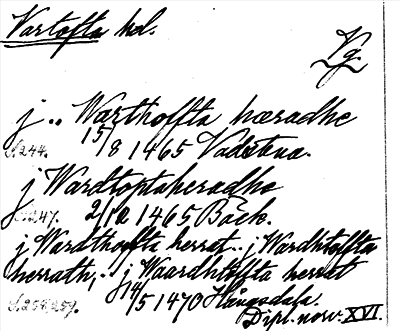 Vartofta hd.
Vg.
j .. Warthoffta hæradhe
S. 244. 15/8 1465 Vadstena.
j Wardtoptaheradhe
S. 247. 2/10 1465 Bäck.
j Wardhoffta herret .. j Wardhtoffta
herrath, .. j Waardhtoffta herret
S. 256, 257. 14/5 1470 Hångsdala.
Dipl. norv. XVI.